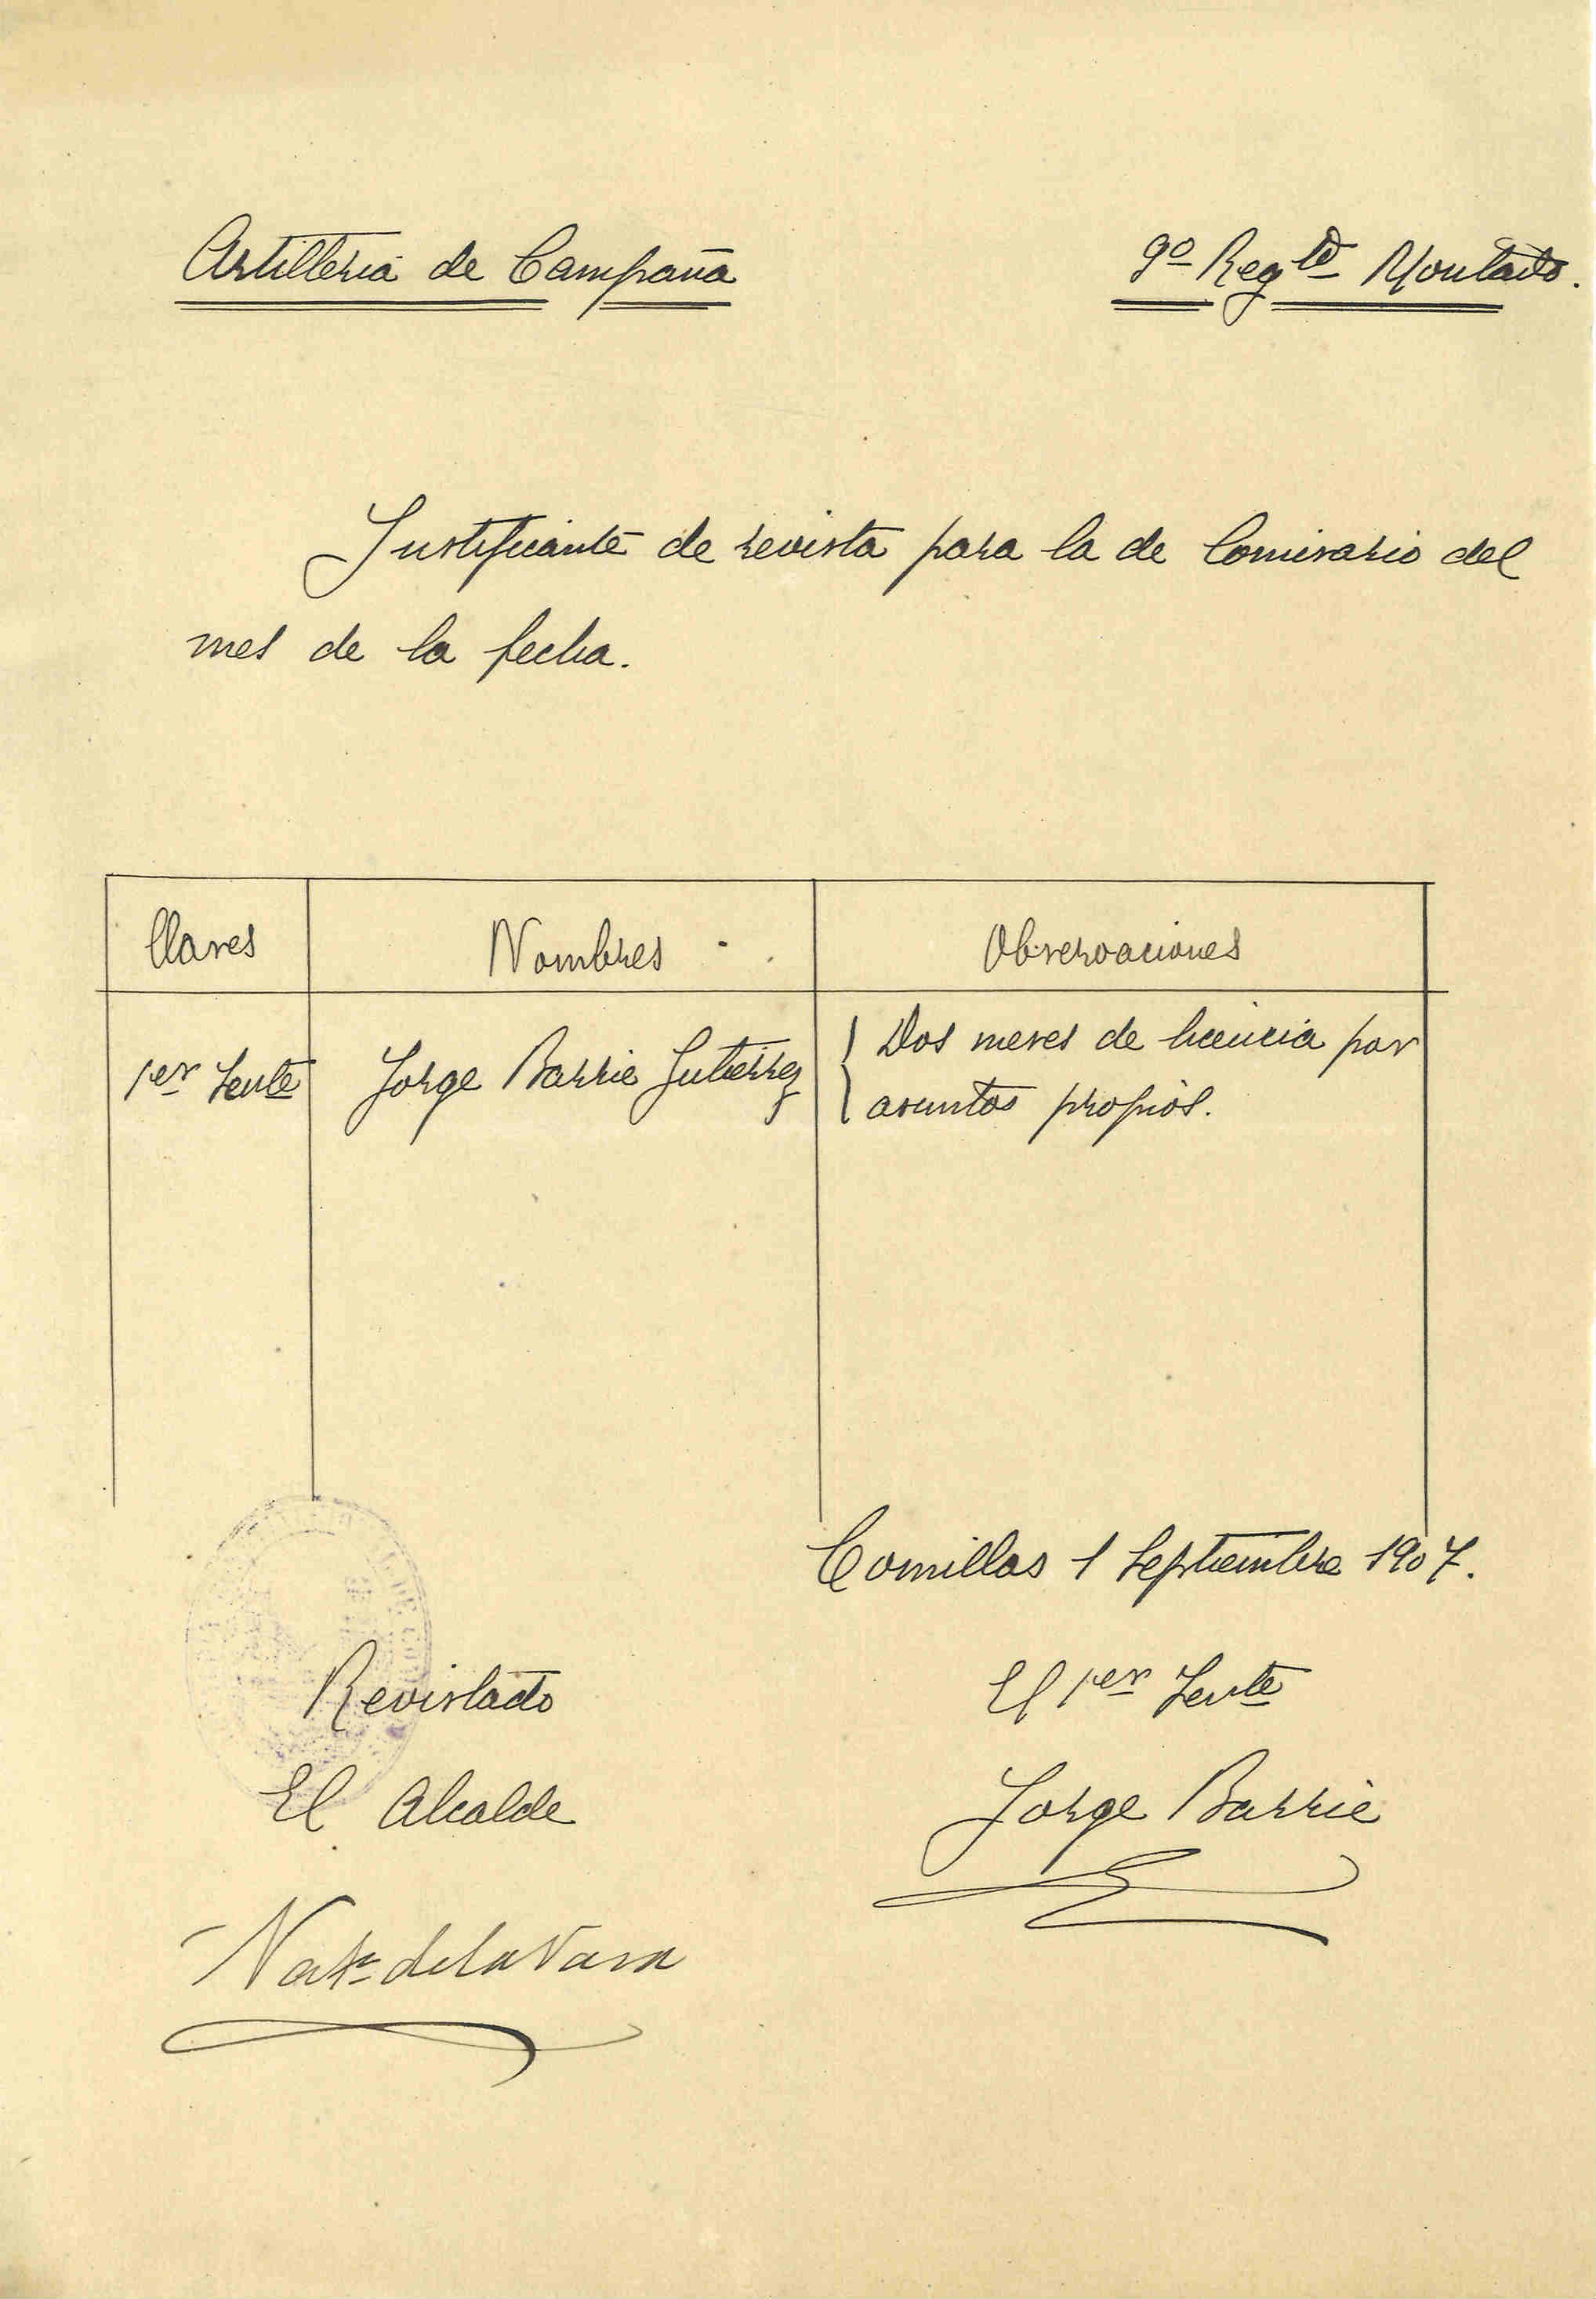 Artillería de Campaña
9º Regto Montado.
Justificante de revista para la de Comisario del
mes de la fecha.
Clases Nombres Observaciones
1er Tente Jorge Barrie Gutierrez Dos meses de licencia por
asuntos propios.
Comillas 1 Septiembre 1907.
Revistado
El 1er Tente
El Alcalde
Jorge Barrie
de la Vara